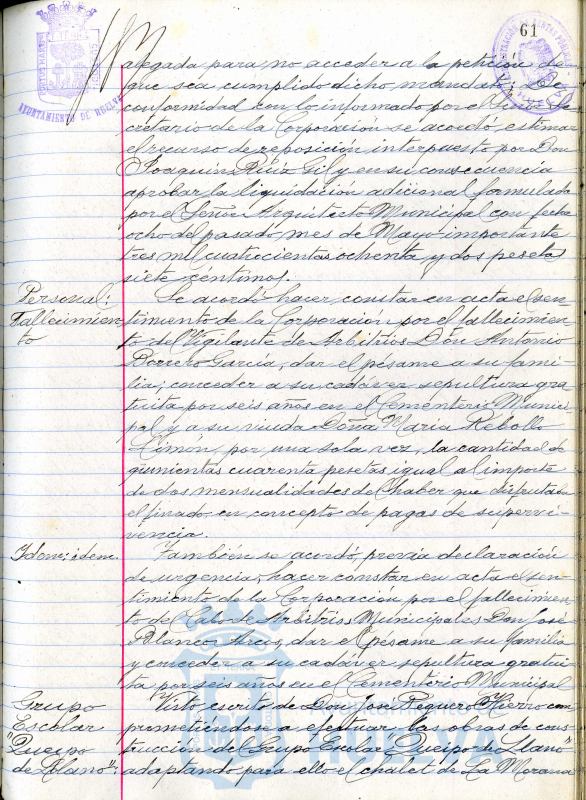 61
AYUNTAMIENTO DE HUELVA
alegada para no acceder a la petición de
que sea cumplido dicho mandar
conformidad con lo informado por el Se-
cretario de la Corporación se acordó estimar
el recurso de reposición interpuesto por Don
Joaquin Ruiz Gil y en su consecuencia
aprobar la liquidación adicional formulada
por el Señor Arquitecto Municipal con fecha
ocho del pasado mes de Mayo importante
tres mil cuatrocientas ochenta y dos pesetas
siete céntimos.
Personal:
Fallecimien-
to
Se acordó hacer constar en acta el sen-
timiento de la Corporación por el fallecimien-
to del Vigilante de Arbitrios Don Antonio
Borrero García, dar el pésame a su fami-
lia; conceder a su cadáver sepultura gra-
tuita por seis años en el Cementerio Munici-
pal y a su viuda Doña Maria Rebollo
Limón, por una sola vez, la cantidad de
quinientas cuarenta pesetas, igual al importe
de dos mensualidades del haber que disfrutaba
el finado en concepto de pagas de supervi-
vencia.
Idem: idem.
También se acordó previa declaración
de urgencia, hacer constar en acta el sen-
timiento de la Corporación por el fallecimien-
to del Cabo de Arbitrios Municipales Don José
Blanco Arcos, dar el pésame a su familia
y conceder a su cadáver sepultura gratui-
ta por seis años en el Cementerio Municipal
Grupo
Escolar
"Queipo
de Llano":
Visto escrito de Don José Peguero Hierro com
prometiéndose a efectuar las obras de cons-
trucción del Grupo Escolar "Queipo de Llano"
adaptando para ello el chalet de La Morana